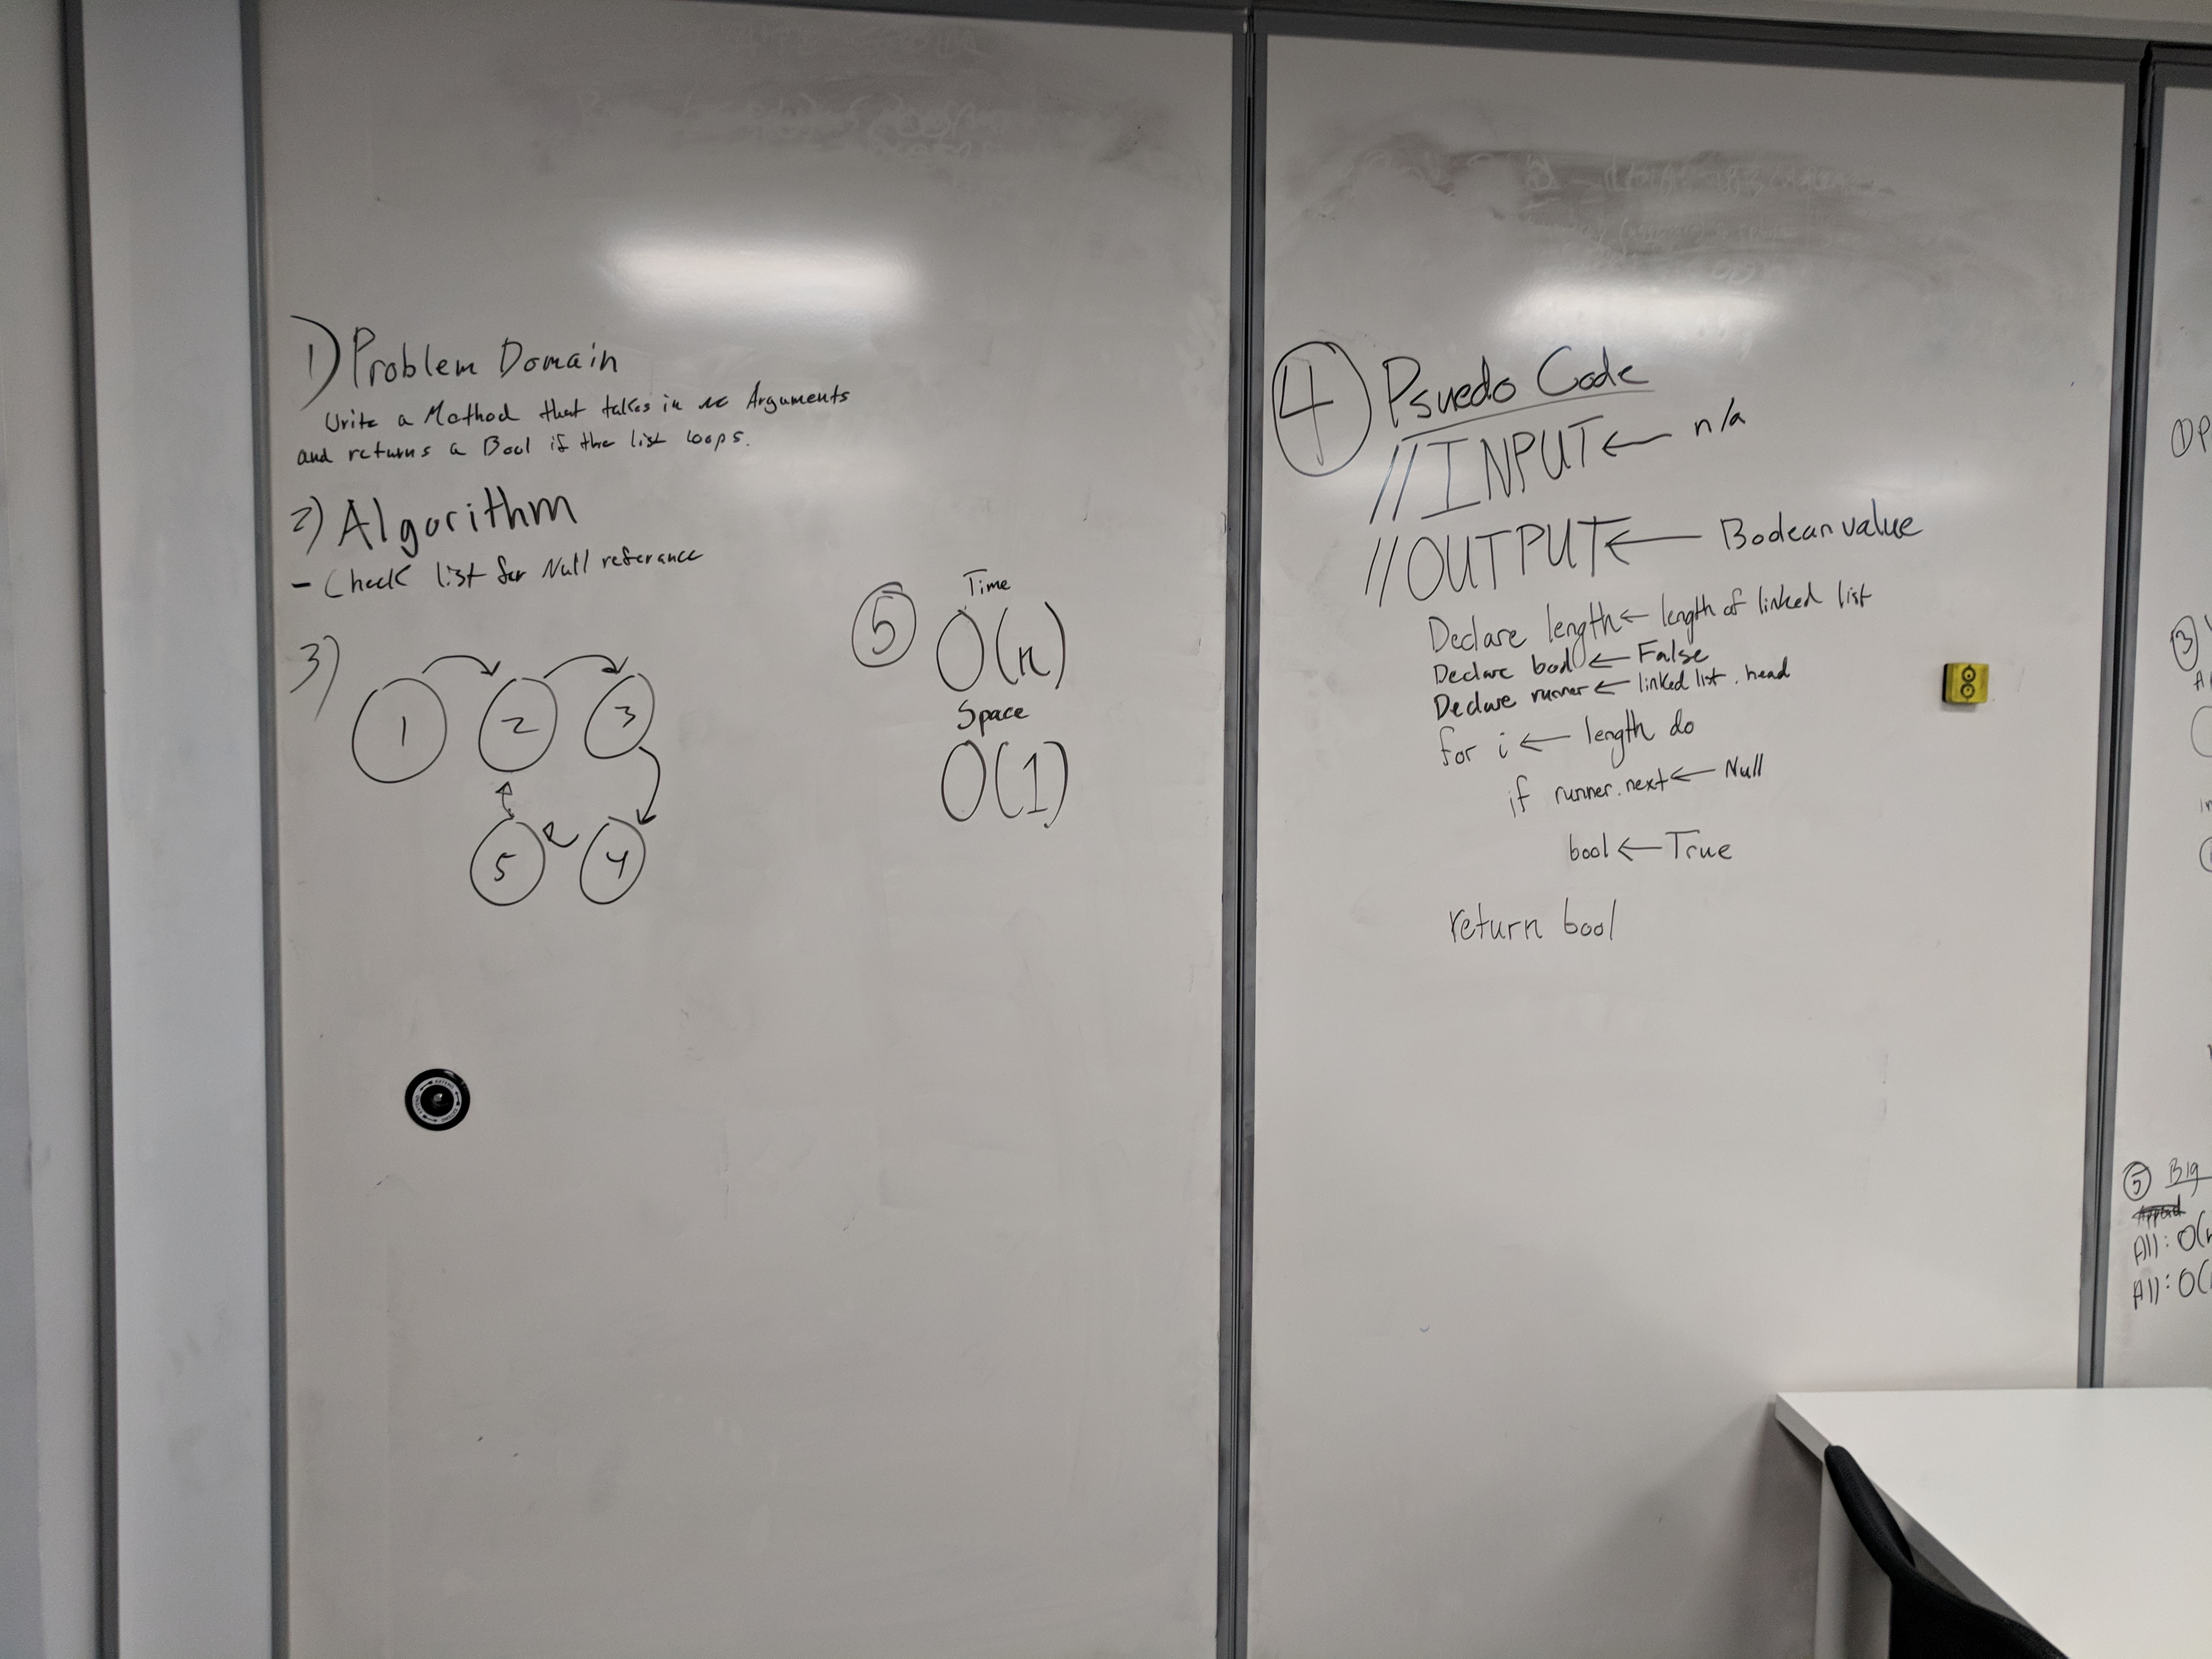 1) Problem Domain
Write a Method that takes in no Arguments
and returns a Bool if the list loops.
2) Algorithm
- Check list for Null referance
3)
1 2 3
5 4
5 Time
O(n)
Space
O(1)
4 Psuedo Code
//INPUT ← n/a
//OUTPUT ← Boolean value
Declare length ← length of linked list
Declare bool ← False
Declare runner ← linked list . head
for i ← length do
if runner.next ← Null
bool ← True
return bool
1
3
5 Big
All: O(
All: O(